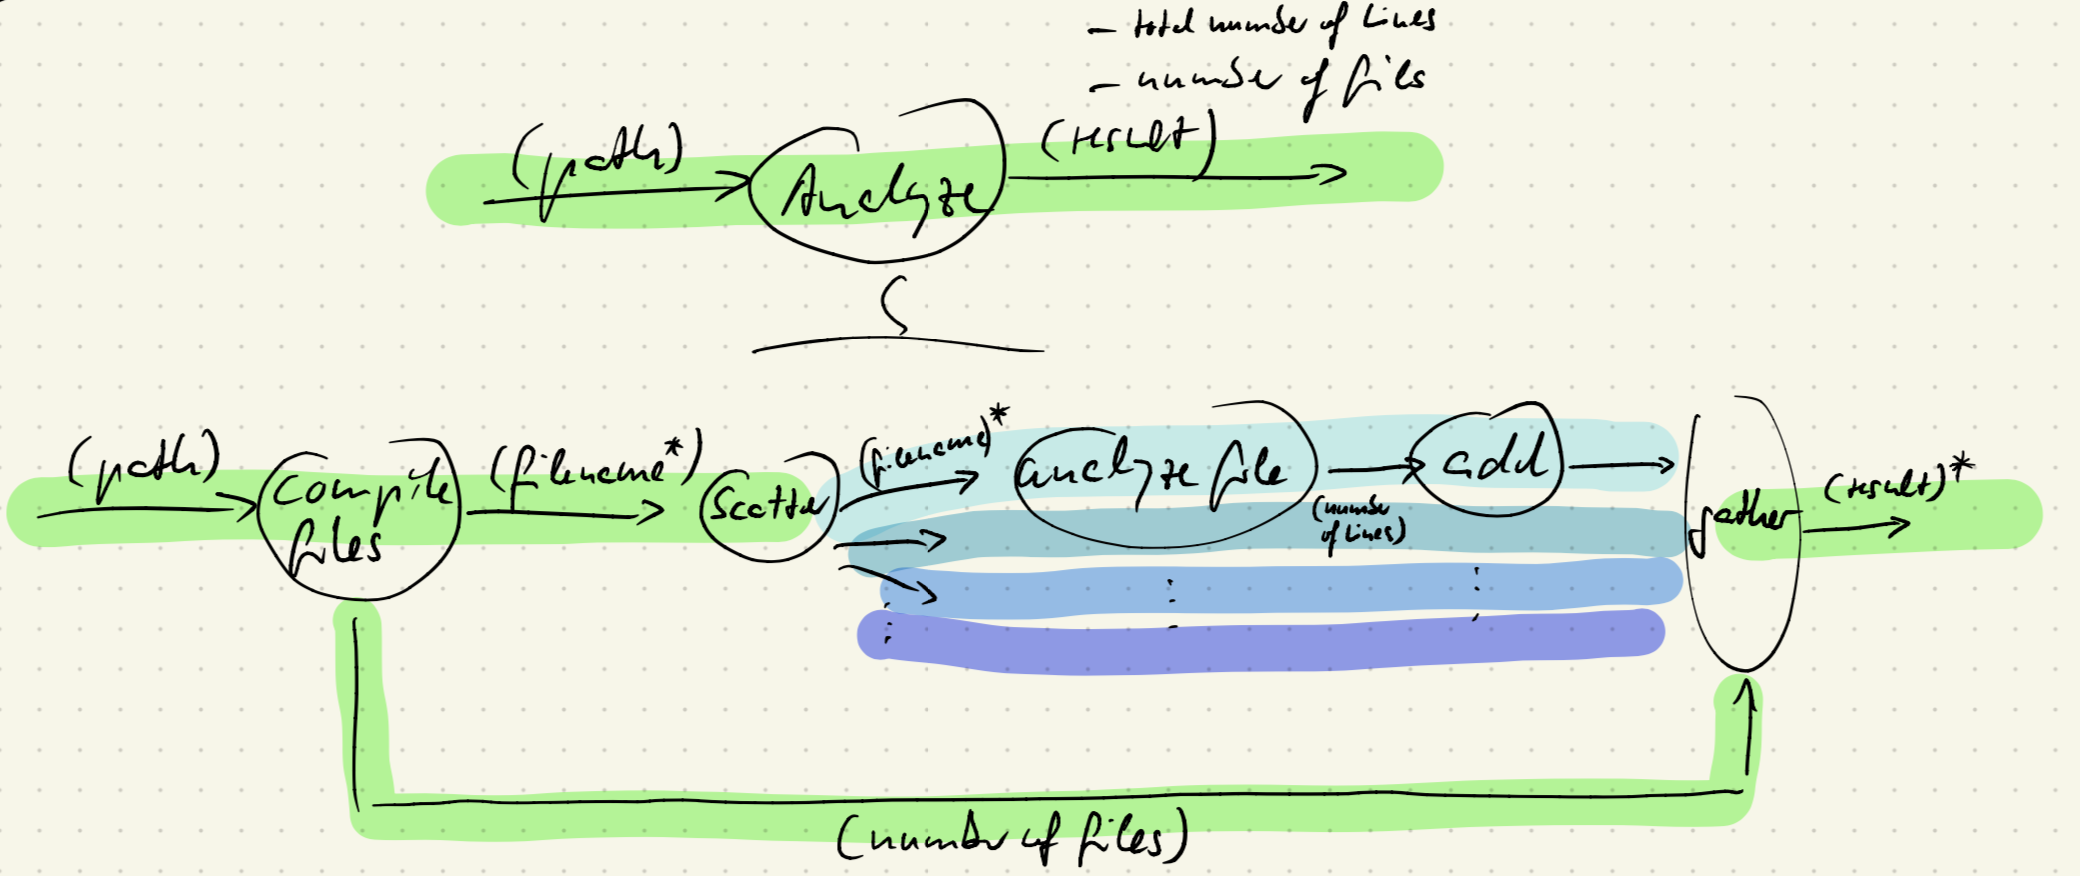 - total number of lines
- number of files
(path)
Analyze
(result)
(path)
compile
files
(filename*)
Scatter
(filename)*
analyze file
(number
of lines)
add
gather
(result)*
(number of files)